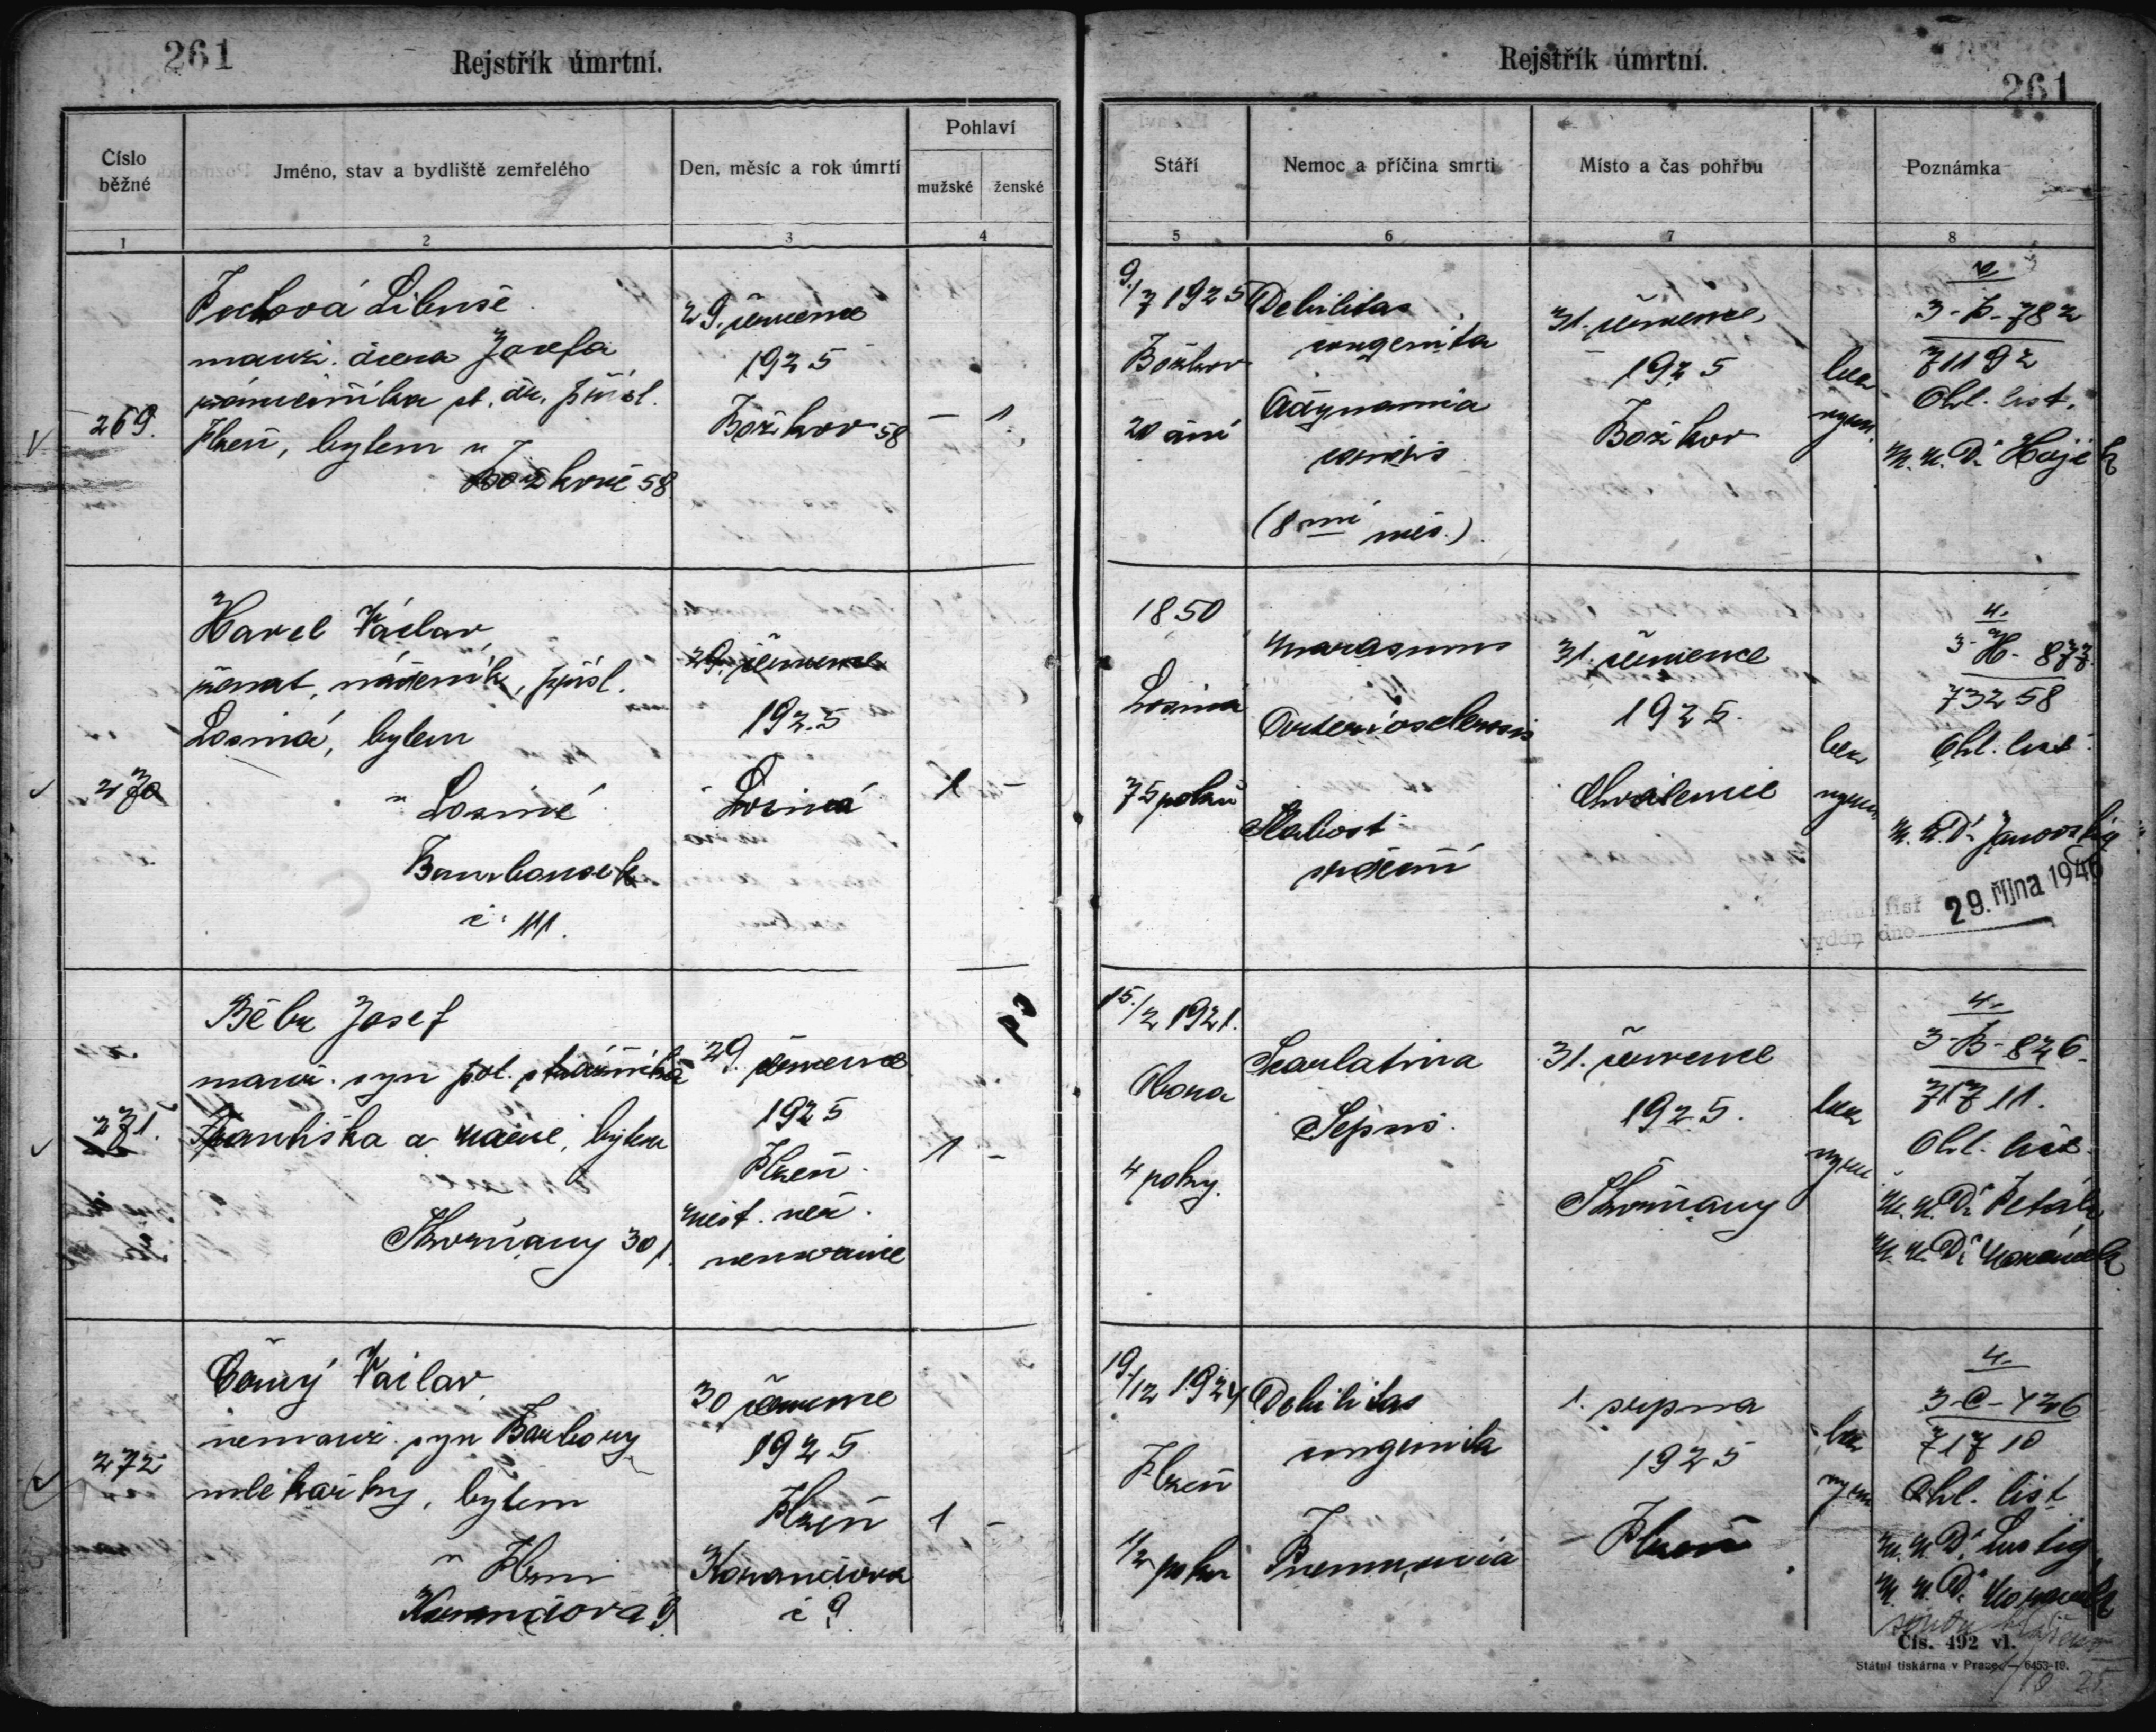 261
Rejstřík úmrtní.
Číslo běžné
Jméno, stav a bydliště zemřelého
Den, měsíc a rok úmrtí
Pohlaví
mužské
ženské
1
2
3
4
269.
Libuše
manž. dcera Josefa
st. dr. přísl.
Plzeň, bytem v
Božkově 58
29. července
1925
Božkov 58
–
1
270
Havel Václav
ženat, nádeník, přísl.
Losiná, bytem
v Losiné
č. 111.
29. července
1925
Losiná
1
–
271.
Běbr Josef
manž. syn pol. strážníka
Františka a Marie, bytem
Skvrňany 301
29. července
1925
Plzeň
měst. veř.
nemocnice
1
–
272
Černý Václav
nemanž. syn Barbory
mlékařky, bytem
v Plzni
Korandova 9
30 července
1925
Plzeň
Korandova
č 9
1
–
Rejstřík úmrtní.
261
Stáří
Nemoc a příčina smrti
Místo a čas pohřbu
Poznámka
5
6
7
8
9./7 1925
Božkov
20 dní
Debilitas
congenita
Adynamia
cordis
(8mi měs.)
31. července
1925
Božkov
bez
vyzn.
3-P-782
71192
Ohl. list.
M. U. Dr Hájek
1850
Losiná
75 roků
Marasmus
Arteriosclerosis
Slabost
srdeční
31. července
1925.
Chválenice
bez
vyzn.
4.
3-H-877.
73258
Ohl. list
M. U. Dr. Janovský
list
vydán dne
29. října 1946
15./2 1921.
4 roky.
Scarlatina
Sepsis.
31. července
1925.
Skvrňany
bez
vyzn.
4.
3-B-826.
71711.
Ohl. list.
M. U. Dr
M. U. Dr
19./12 1924
Plzeň
1/2 roku
Debilitas
congenita
Pneumonia
1. srpna
1925
Plzeň
bez
vyzn
4.
3-C-426
71710
Ohl. list
M. U. Dr. Lustig
M. U. Dr.
Čís. 492 vl.
Státní tiskárna v Praze. — 6453-19.